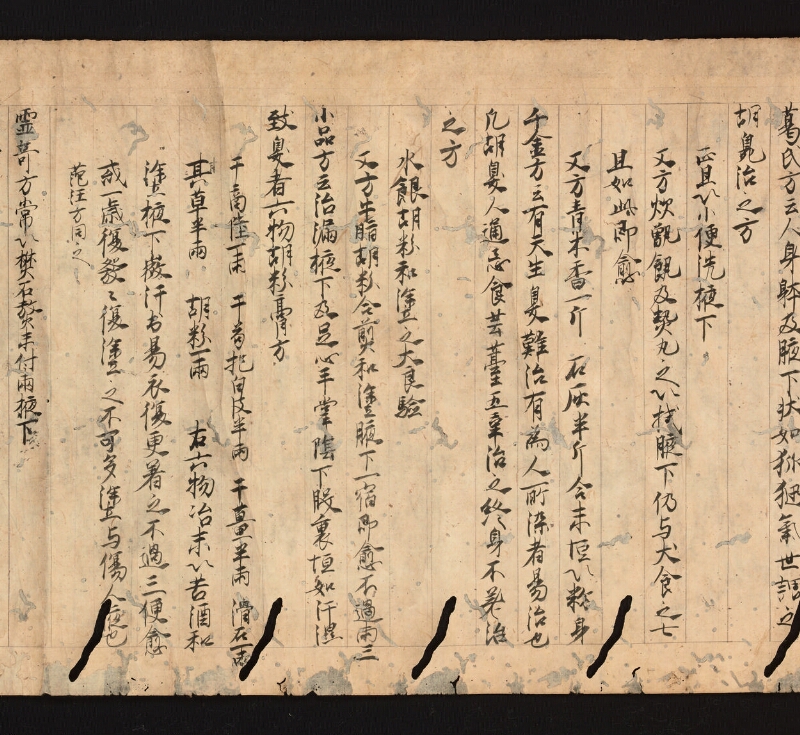 葛氏方云人身躰及腋下状如狐狸氣世謂之
胡臰治之方
正旦以小便洗腋下
又方炊甑飯及熱丸之以拭腋下仍与犬食之七
且如此即愈
又方青木香一斤 石灰半斤合末恒以粉身
千金方云有天生臭難治有為人所染者易治也
凡胡臭人通忌食芸薹五辛治之終身不差治
之方
水銀胡粉和塗之大良驗
又方牛脂胡粉合煎和塗腋下一宿即愈不過兩三
小品方云治漏腋下及足心手掌陰下股裏恒如汗濕
致臭者六物胡粉膏方
干商陸一兩 干苟杞白皮半兩 干薑半兩 滑石一兩
其草半兩 胡粉一兩 右六物冶末以苦酒和
塗腋下微汗出易衣復更着之不過三便愈
或一歳復發々復塗之不可多塗与傷人腋也
范汪方同之
靈奇方常以樊石熬末付兩掖下